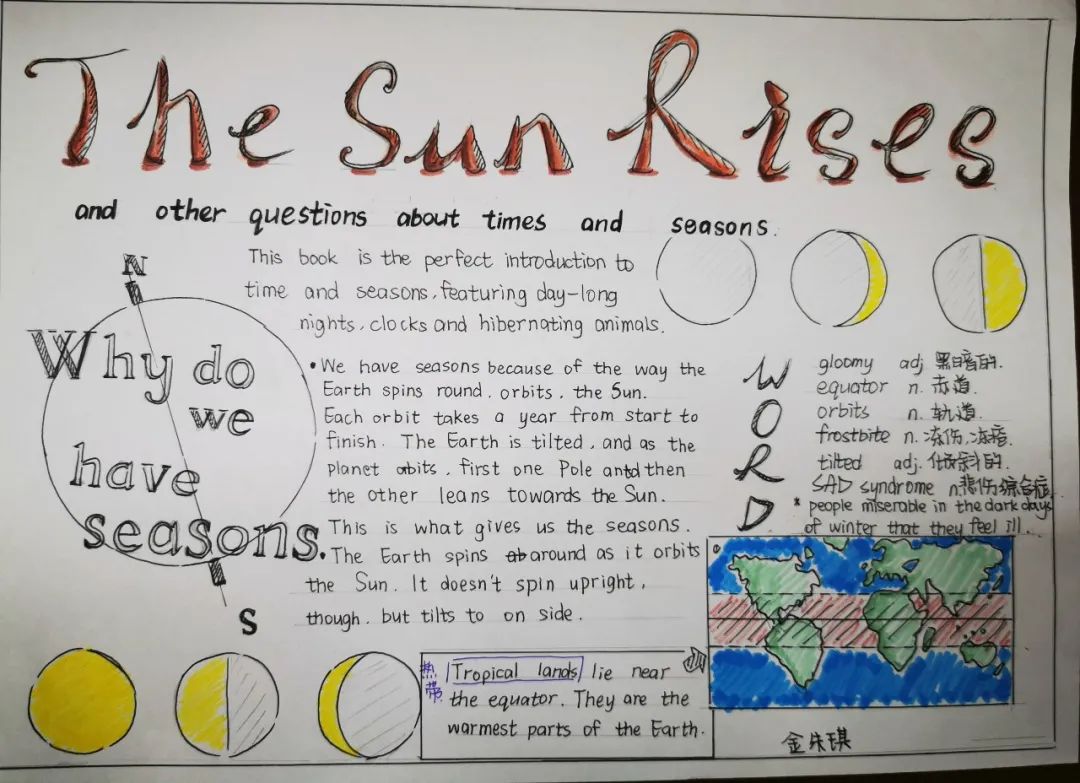 The Sun Rises
and other questions about times and seasons.
This book is the perfect introduction to
time and seasons, featuring day-long
nights, clocks and hibernating animals.
N
Why do
we
have
seasons.
S
• We have seasons because of the way the
Earth spins round, orbits, the Sun.
Each orbit takes a year from start to
finish. The Earth is tilted, and as the
planet orbits, first one Pole and then
the other leans towards the Sun.
This is what gives us the seasons.
The Earth spins around as it orbits
the Sun. It doesn't spin upright,
though, but tilts to on side.
WORD
gloomy adj 黑暗的.
equator n. 赤道.
orbits n. 轨道.
frostbite n. 冻伤,冻疮.
tilted adj. 倾斜的.
SAD syndrome n.悲伤综合症.
* people miserable in the dark days
of winter that they feel ill.
热带
Tropical lands lie near
the equator. They are the
warmest parts of the Earth.
金朱琪